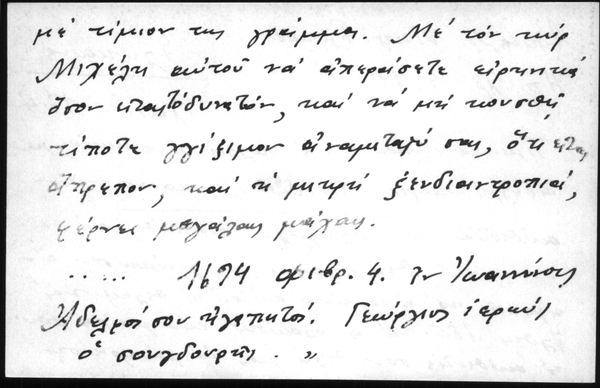 μέ τίμιον τας γράμμα. Μέ τόν κύρ
Μιχέλη αὐτοῦ νά ἀπεράσετε εἰρηνικά
ὅσον κατατόδυνατόν, καί νά μή κουσθῇ
τίποτε γγίξιμον ἀναμεταξύ σας, ὅτι εἶναι
ἄπρεπον, καί ἡ μικρή ξενδιαντροπιά,
φέρνει μεγάλας μάχας.
. . . . . 1694 φεβρ. 4. Ἐν Ἰωαννίνοις
Ἀδελφοί σου ἠγαπητοί. Γεώργιος ἱερεύς
ὁ σουγδουρῆς. "